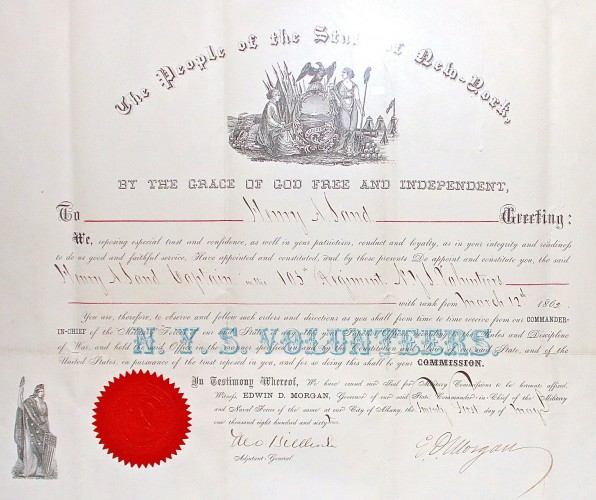 The People of the State of New-York,
BY THE GRACE OF GOD FREE AND INDEPENDENT,
To Henry A Sand Greeting:
We, reposing especial trust and confidence, as well in your patriotism, conduct and loyalty, as in your integrity and readiness
to do us good and faithful service, Have appointed and constituted, and by these presents Do appoint and constitute you, the said
Henry A Sand Captain in the 103d Regiment N.Y.S. Volunteers
with rank from March 12th 1862.
You are, therefore, to observe and follow such orders and directions as you shall from time to time receive from our COMMANDER-
IN-CHIEF of the Military Forces of our said State, or any other your Superior Officer, according to the Rules and Discipline
of War, and hold the said Office in the manner specified in and by the Constitution and Laws of our said State, and of the
United States, in pursuance of the trust reposed in you, and for so doing this shall be your COMMISSION.
N.Y.S. VOLUNTEERS
In Testimony Whereof, We have caused our Seal for Military Commissions to be hereunto affixed.
Witness, EDWIN D. MORGAN, Governor of our said State Commander-in-Chief of the Military
and Naval Forces of the same at our City of Albany, the twenty first day of
one thousand eight hundred and sixty two
Thos Hillhouse
Adjutant-General
E. D. Morgan